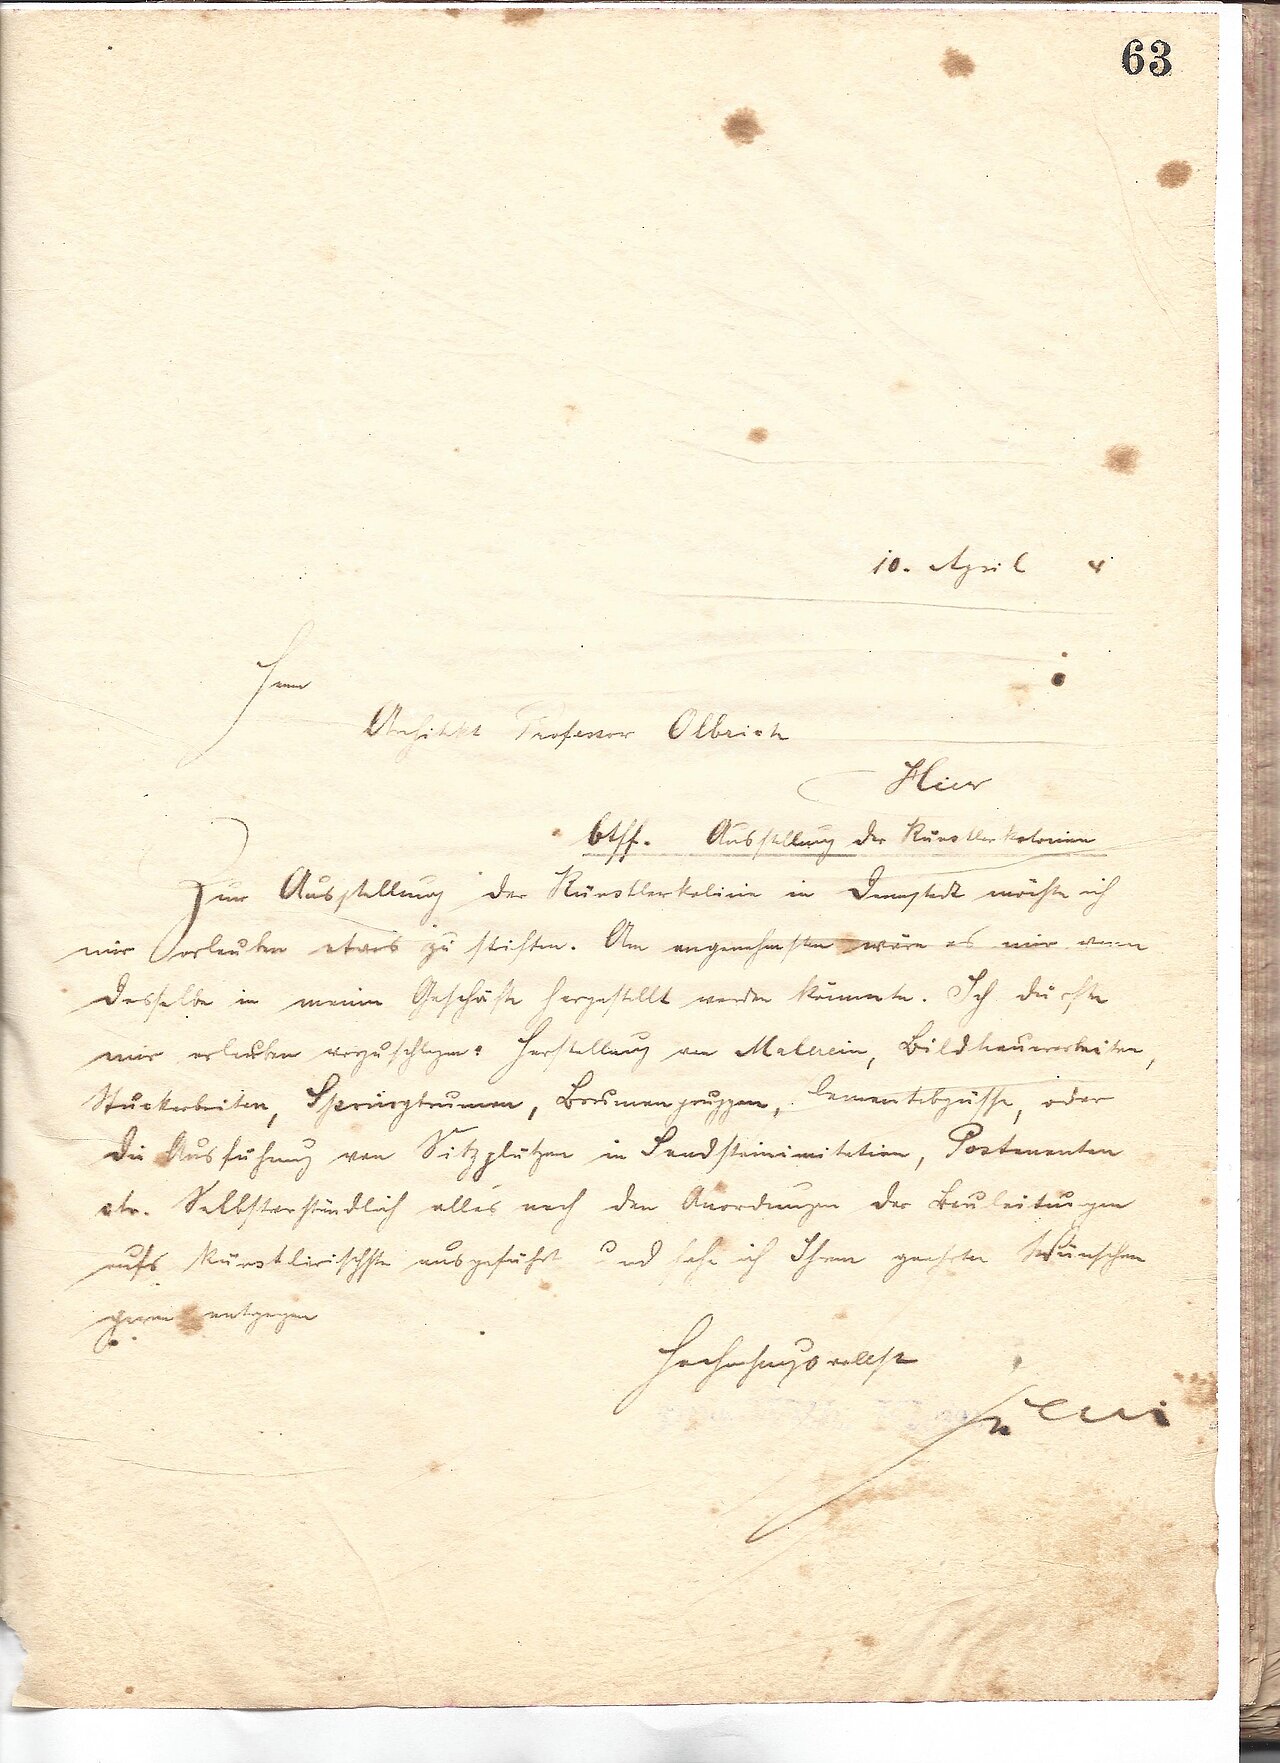 63
10. April 4
Herrn
Architekt Professor Olbrich
Hier
btff. Ausstellung der Künstlerkolonien
Zur Ausstellung der Künstlerkolinie in Darmstadt möchte ich
mir erlauben etwas zu stiften. Am angenehmsten wäre es mir wenn
dasselbe in meinem Geschäfte hergestellt werden könnte. Ich dürfte
mir erlauben vorzuschlagen: Herstellung von Malerein, Bildhauerarbeiten,
Stuckarbeiten, Springbrunnen, Brunnengruppen, Cementabgüsse, oder
die Ausführung von Sitzplätzen in Sandsteinimitation, Postamenten
etc. Selbstverständlich alles nach den Anordnungen der Bauleitungen
aufs künstlirischste ausgeführt und sehe ich Ihren geehrten Wünschen
gerne entgegen
Hochachtungsvollst